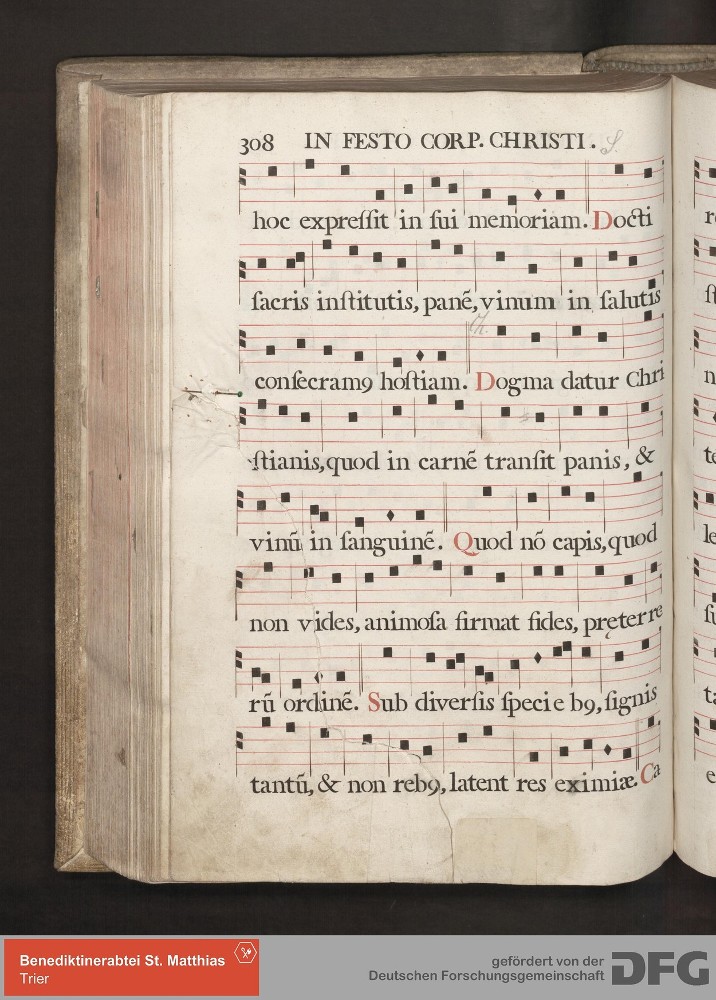 308 IN FESTO CORP. CHRISTI. S.
hoc expreſſit in ſui memoriam. Docti
ſacris inſtitutis, panē, vinum in ſalutis
Ch.
conſecram9 hoſtiam. Dogma datur Chri
ſtianis, quod in carnē tranſit panis, &
vinū in ſanguinē. Quod nō capis, quod
non vides, animoſa firmat fides, pręter re
rū ordinē. Sub diverſis ſpecieb9, ſignis
tantū, & non reb9, latent res eximiæ. Ca
Benediktinerabtei St. Matthias
Trier
gefördert von der
Deutschen Forschungsgemeinschaft
DFG